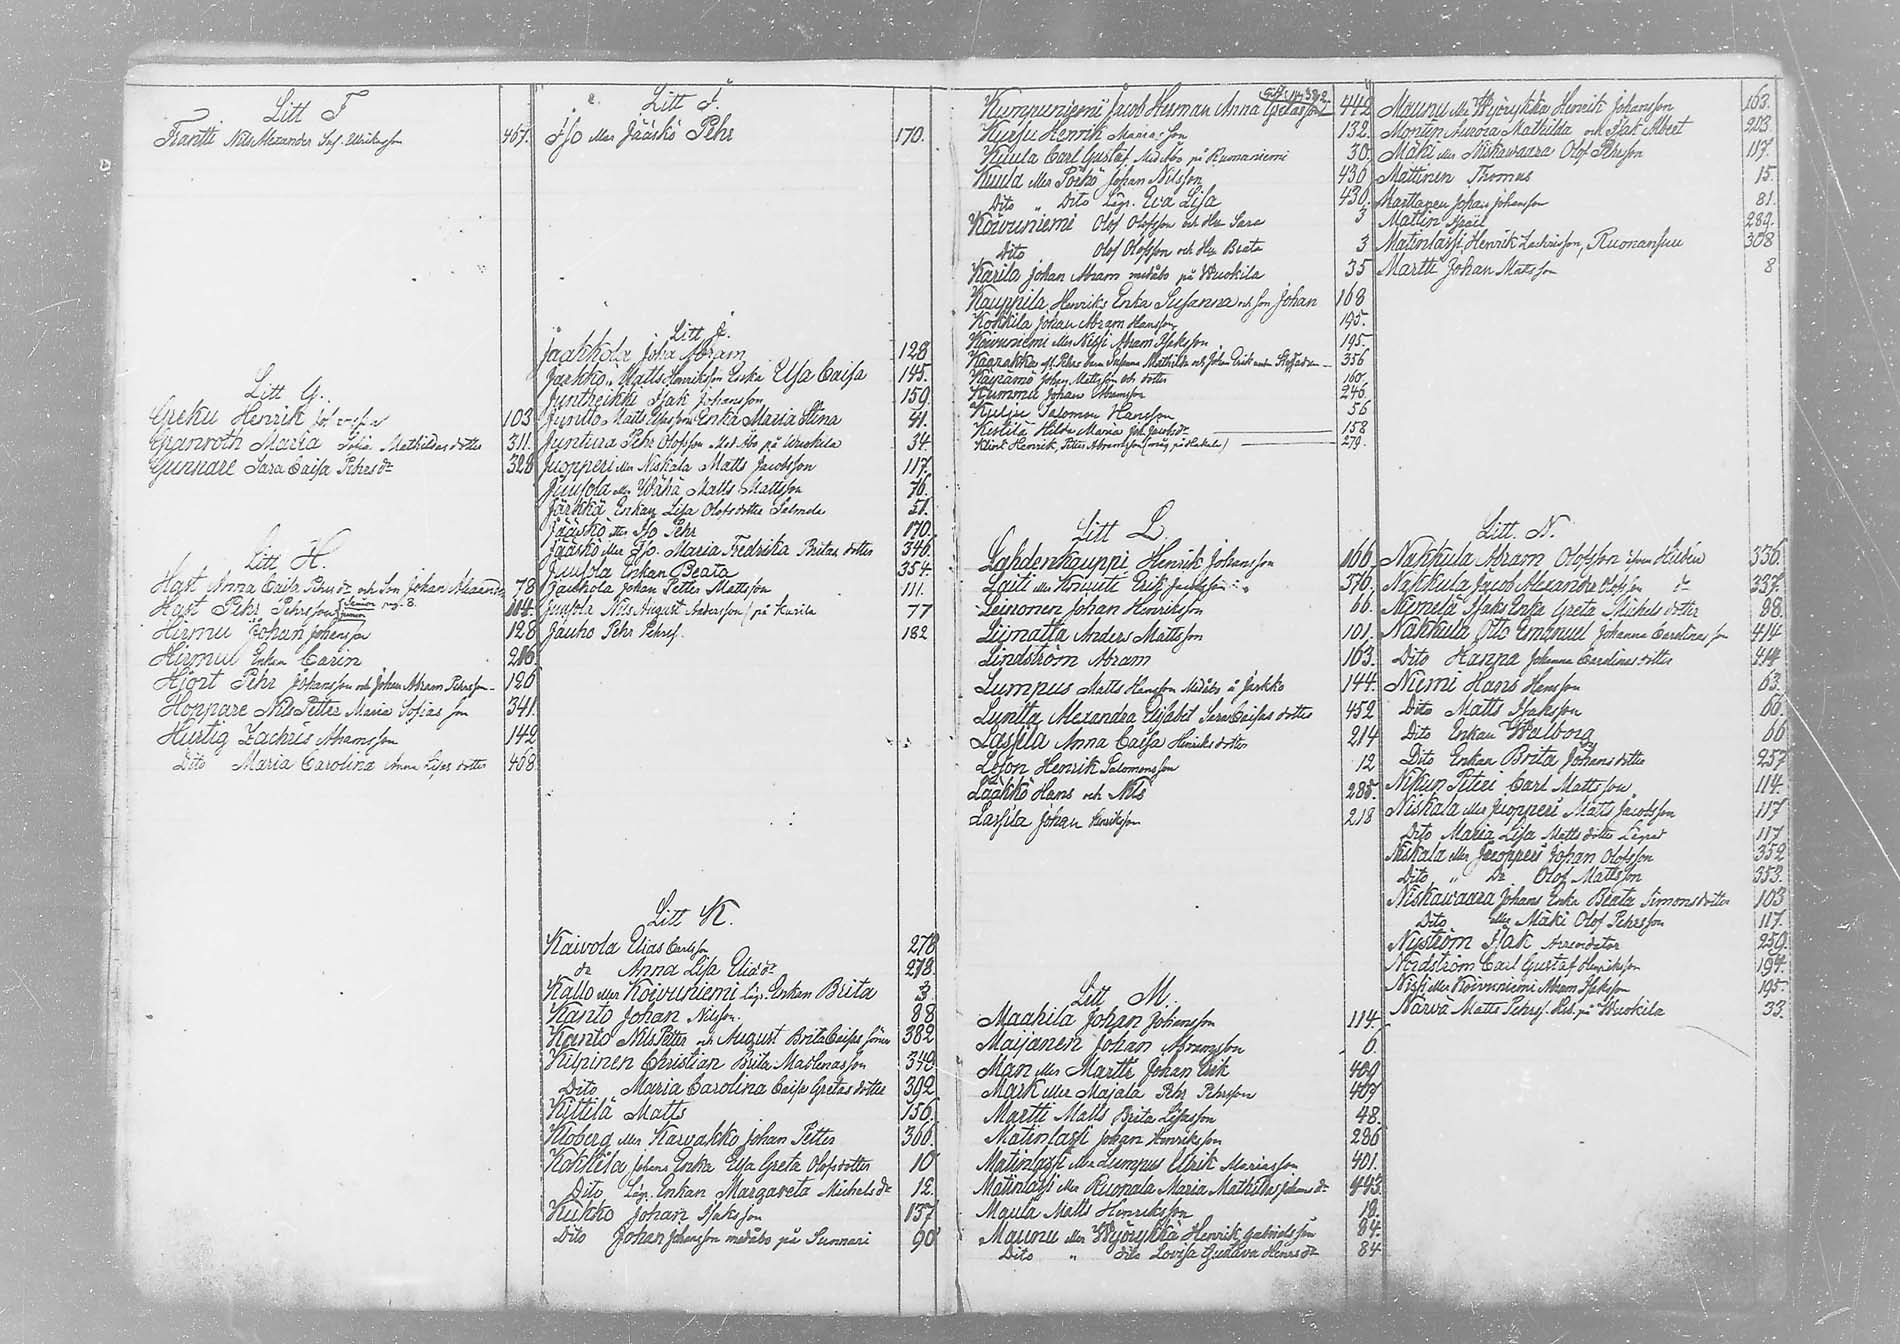 Litt F
Frantti Nils Alexander Ulriksson 467.
Litt G.
Greku Henrik 103
Granroth Maria Sofia Mathildasdotter 311.
Gunnare Sara Caisa Pehrs dr 328
Litt H.
Hast Anna Caisa Pehrs dr och Son Johan Alexander 78
Hast Pehr Pehrsson Senior pag. 8. Junior 114.
Hirmu Johan Johansson 128
Hirmu Enkan Carin 216
Hjort Pehr Johansson och Johan Abram Pehrsson 126
Hoppare Nils Petter Maria Sofias son 341.
Hurtig Zachris Abramsson 142
Dito Maria Carolina Anna Lisas dotter 408
Litt I.
Iso eller Jääskö Pehr 170.
Litt J.
Jaakkola Abram 128
Jarkko Matts Henriksson Enka Elsa Caisa 145.
Juntheikki Isak Johansson 159
Juntto Matts Enka Maria Stina 41.
Juntura Pehr Olofsson Med.åbo på Wuokila 34.
Juopperi eller Niskala Matts Jacobsson 117.
Juusola eller Wähä Matts Mattsson 76.
Järkkä Enkan Lisa Olofsdotter 51.
Jääskö eller Iso Pehr 170.
Jääskö eller Iso Maria Fredrika Britas dotter 346.
Juusola Enkan Beata 354.
Jaakkola Johan Petter Mattsson 111.
Juusola Nils August Andersson (på Kurila 77
Jauho Pehr Pehrs. 182
Litt K.
Kaivola Elias Carlsson 278
dr Anna Lisa Elias dr 278.
Kallo eller Koivuniemi lägr. Enkan Brita 3
Kanto Johan Nilsson. 88
Kanto Nils Petter och August Brita Caisas söner 382
Kilpinen Christian Brita Madlenas son 348
Dito Maria Carolina Caisa Gretas dotter 392
Kittilä Matts 156.
Kloberg eller Karvakko Johan Petter 366.
Kokkila Johans Enka Elsa Greta Olofsdotter 10
Dito Lägr. Enkan Margareta Michels dr 12.
Kukko Johan Isaksson 137
Dito Johan Johansson medåbo på Sunnari 90
Kumpuniemi Jacob Herman Anna Gretasson 442
Kurju Henrik Mariasson 132.
Kuula Carl Gustaf Medåbo på Rumaniemi 30.
Kuula eller Sorkö Johan Nilsson 430
Dito " Dito Lägr. Eva Lisa 430.
Koivuniemi Olof Olofsson och Hu Sara 3
Dito Olof Olofsson och Hu Brata 3
Karila Johan Abram medåbo på Wuokila 35
Kauppila Henriks Enka Susanna och son Johan 168
Kokkila Johan Abram Hansson 195.
Koivuniemi eller Nissi Abram Isaksson 195.
356
Johan Mattsson och dotter 160.
Kumma Johan Abramson 246.
Kulju Salomon Hansson 56
Kestilä Hilda Maria 158
Klint Henrik Petter Abramsson 279.
Litt L.
Lahdenkauppi Henrik Johansson 166
Laiti eller Knuuti Erik 576.
Leinonen Johan Henriksson 66
Liimatta Anders Mattsson 101.
Lindström Abram 163.
Lumpus Matts Hansson Medåbo å Jarkko 144.
Luntta Alexandra Elisabet Sara Caisas dotter 452
Lassila Anna Caisa Henriksdotter 214
Henrik Salomonsson 12
Laakkö Hans och Nils 285.
Lassila Johan Henriksson 218
Litt M.
Maahila Johan Johansson 114.
Maijanen Johan Abramson 6.
Man eller Martti Johan Erik 409
Mark eller Majala Pehr Pehrsson 409
Martti Matts Brita Lisasson 48.
Matinlassi Johan Henriksson 286
Matinlassi eller Lumpus Ulrik Mariasson 401.
Matinlassi eller Ruonala Maria Mathilda Johans dr 443.
Maula Matts Henriksson 19.
Maunu eller Wyörykkä Henrik Gabrielsson 84.
Dito " dito Lovisa Gustava Henrs dr 84
Maunu eller Wyörykkä Henrik Johansson 163.
Montin Aurora Mathilda och Isak Albert 203.
Mäki eller Niskawaara Olof Pehrsson 117.
Mattinen Thomas 15.
Marttanen Johan Johansson 81.
Mattin 289.
Matinlassi Henrik Zachrisson, Ruonansuu 308
Martti Johan Mattsson 8
Litt. N.
Nakkula Abram Olofsson även Hidén 336.
Nakkula Jacob Alexander Olofsson dr 337.
Niemelä Isaks Enka Greta Michels dotter 88.
Nakkula Otto Emanuel Johanna Carolinas son 414
Dito Hanna Johanna Carolinas dotter 414
Niemi Hans Hansson 63.
Dito Matts Isaksson 66.
Dito Enkan Walborg 66
Dito Enkan Brita Johansdotter 257
Nikun Piteri Carl Mattsson 114.
Niskala eller Juopperi Matts Jacobsson 117
Dito Maria Lisa Mattsdotter Lägrad 117
Niskala eller Juopperi Johan Olofsson 352
Dito " Dr Olof Mattsson 353.
Niskawaara Johans Enka Beata Simonsdotter 103
Dito eller Mäki Olof Pehrsson 117.
Nyström Isak Arrendator 259.
Nordström Carl Gustaf Henriksson 194.
Nissi eller Koivuniemi Abram Isaksson 195.
Närvä Matts Pehrs. på Wuokila 33.